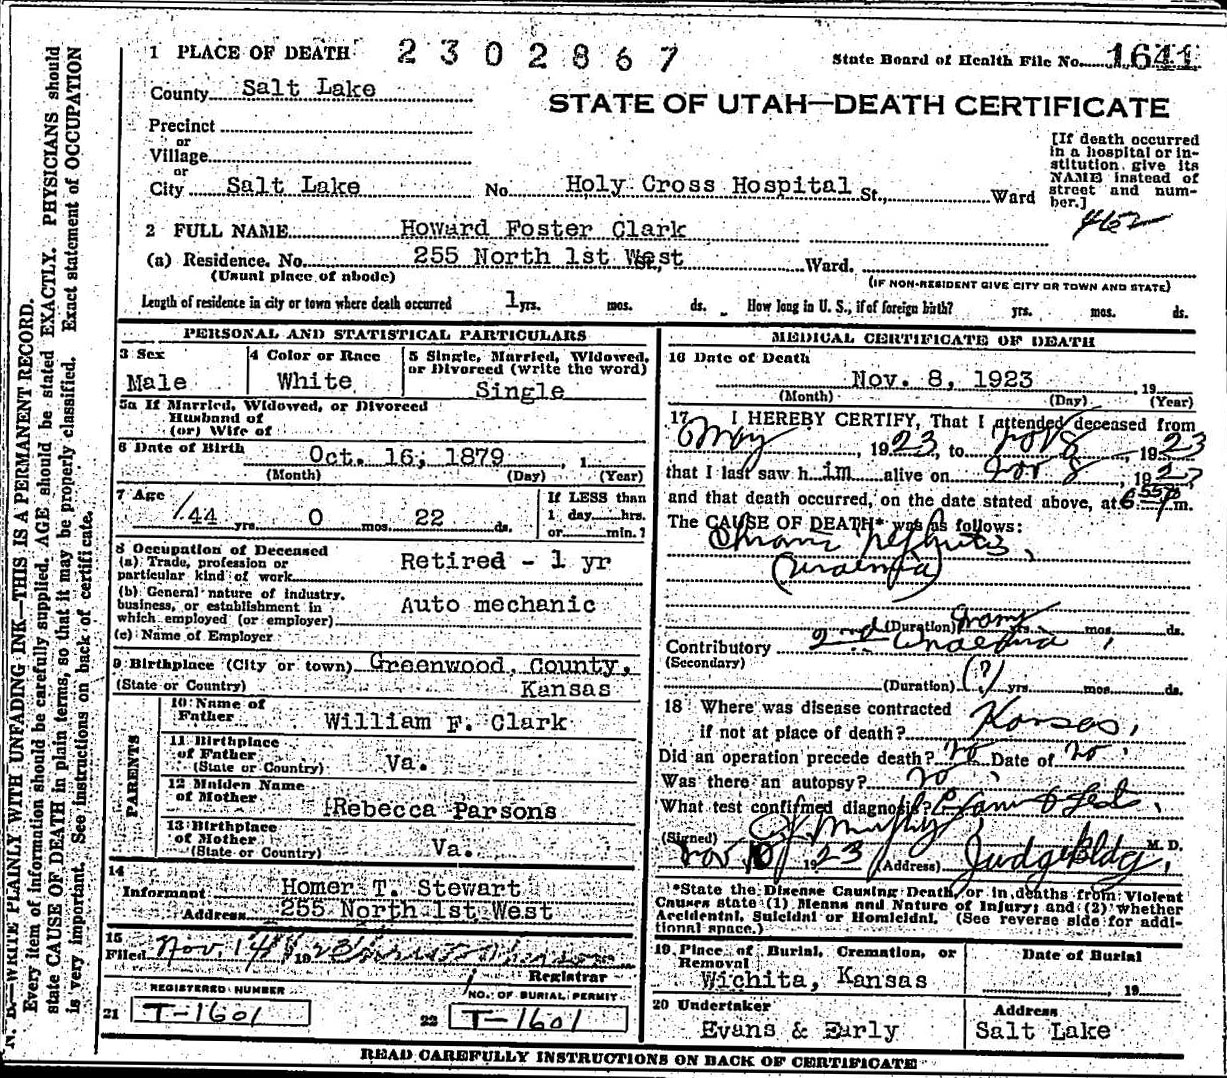 1 PLACE OF DEATH 2302867 State Board of Health File No. 1641
County Salt Lake
STATE OF UTAH—DEATH CERTIFICATE
Precinct
or
Village
or
City Salt Lake No. Holy Cross Hospital St., Ward
[If death occurred
in a hospital or in-
stitution, give its
NAME instead of
street and num-
ber.]
462
2 FULL NAME Howard Foster Clark
(a) Residence. No. 255 North 1st West St., Ward.
(Usual place of abode) (IF NON-RESIDENT GIVE CITY OR TOWN AND STATE)
Length of residence in city or town where death occurred 1 yrs. mos. ds. How long in U. S., if of foreign birth? yrs. mos. ds.
PERSONAL AND STATISTICAL PARTICULARS
3 Sex
Male
4 Color or Race
White
5 Single, Married, Widowed,
or Divorced (write the word)
Single
5a If Married, Widowed, or Divorced
Husband of
(or) Wife of
6 Date of Birth Oct. 16, 1879 , 1
(Month) (Day) (Year)
7 Age
44 yrs. 0 mos. 22 ds.
If LESS than
1 day hrs.
or min.?
8 Occupation of Deceased
(a) Trade, profession or
particular kind of work Retired - 1 yr
(b) General nature of industry,
business, or establishment in
which employed (or employer) Auto mechanic
(c) Name of Employer
9 Birthplace (City or town) Greenwood County,
(State or Country) Kansas
PARENTS
10 Name of
Father William F. Clark
11 Birthplace
of Father
(State or Country) Va.
12 Maiden Name
of Mother Rebecca Parsons
13 Birthplace
of Mother
(State or Country) Va.
14
Informant Homer T. Stewart
Address 255 North 1st West
15
Filed Nov. 14 1923
Registrar
REGISTERED NUMBER
21 T-1601
NO. OF BURIAL PERMIT
22 T-1601
MEDICAL CERTIFICATE OF DEATH
16 Date of Death
Nov. 8, 1923 , 19
(Month) (Day) (Year)
17 I HEREBY CERTIFY, That I attended deceased from
May , 1923, to Nov 8 , 1923
that I last saw h im alive on Nov 8 , 1923
and that death occurred, on the date stated above, at 6 55 P m.
The CAUSE OF DEATH* was as follows:
Chronic Nephritis,
(Uraemia)
(Duration) many yrs. mos. ds.
Contributory 2nd Anaemia,
(Secondary)
(Duration) (?) yrs. mos. ds.
18 Where was disease contracted
if not at place of death? Kansas,
Did an operation precede death? no Date of no
Was there an autopsy? no
What test confirmed diagnosis? Exam & Tests,
(Signed) Murphy M. D.
Nov 10 1923 (Address) Judge Bldg,
*State the Disease Causing Death, or in deaths from Violent
Causes state (1) Means and Nature of Injury; and (2) whether
Accidental, Suicidal or Homicidal. (See reverse side for addi-
tional space.)
19 Place of Burial, Cremation, or
Removal
Wichita, Kansas
Date of Burial
, 19
20 Undertaker
Evans & Early
Address
Salt Lake
READ CAREFULLY INSTRUCTIONS ON BACK OF CERTIFICATE
N. B.—WRITE PLAINLY WITH UNFADING INK—THIS IS A PERMANENT RECORD.
Every item of information should be carefully supplied. AGE should be stated EXACTLY. PHYSICIANS should
state CAUSE OF DEATH in plain terms, so that it may be properly classified. Exact statement of OCCUPATION
is very important. See instructions on back of certificate.